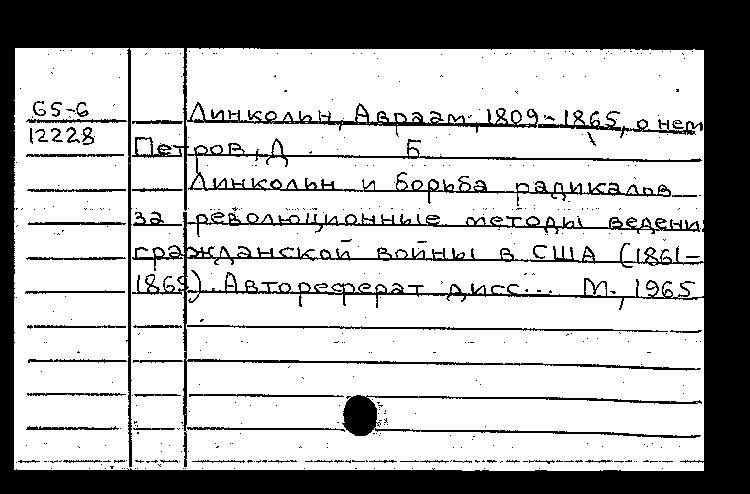 65-6 Линкольн, Авраам, 1809-1865, о нем
12228 Петров, Д. Б
Линкольн и борьба радикалов
за революционные методы ведени
гражданской войны в США (1861-
1865). Автореферат дисс... М., 1965